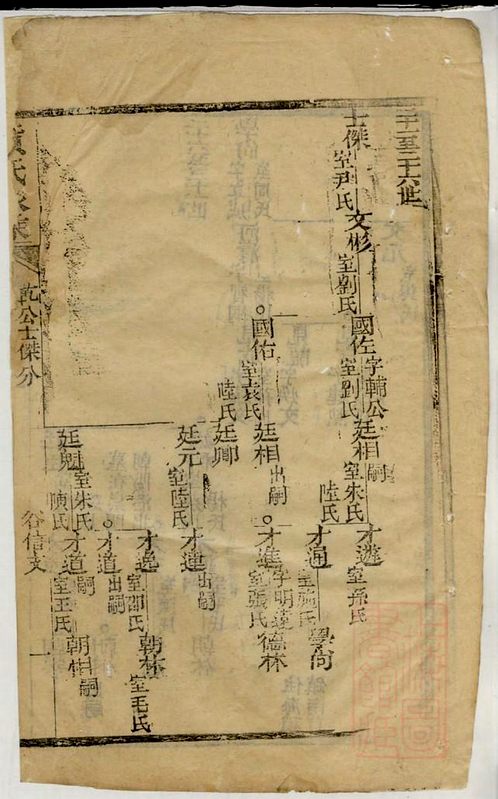 二十一至二十六世
士傑 室尹氏
文彬 室劉氏
國佐 字輔公 室劉氏
廷相 嗣 室朱氏 陸氏
才遴 室孫氏
才通 室施氏
學尚
國佑 室袁氏
廷相 出嗣
才進 字明遠 室張氏
德林
廷卿
陸氏
廷元 室陸氏
才達 出嗣
才逸 室邵氏
朝林 室毛氏
廷魁 室朱氏 陳氏
才道 出嗣
才道 嗣 室王氏
朝相 嗣
氏家乘
乾公士傑分
谷信支
一